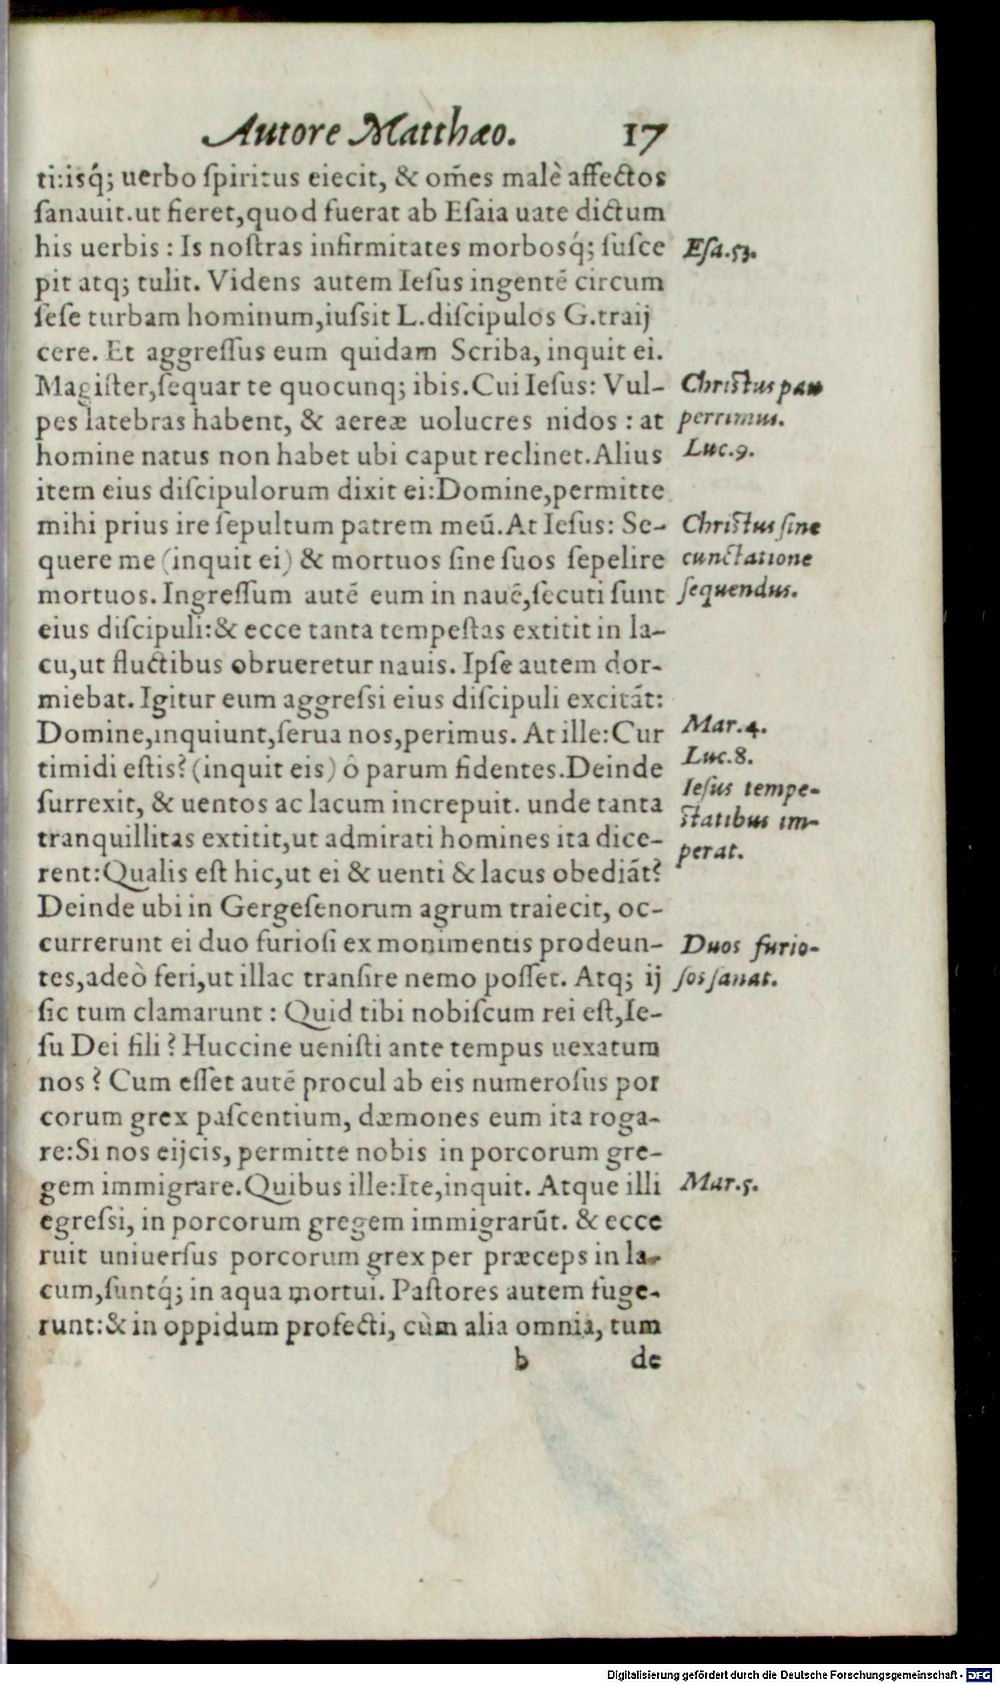 Autore Matthæo. 17
ti:isq́; uerbo ſpiritus eiecit, & om̄es malè affectos
ſanauit.ut fieret,quod fuerat ab Eſaia uate dictum
his uerbis : Is noſtras infirmitates morboſq́; ſuſce
Eſa.53.
pit atq; tulit. Videns autem Ieſus ingentē circum
ſeſe turbam hominum,iuſsit L.diſcipulos G.traij
cere. Et aggreſſus eum quidam Scriba, inquit ei.
Magiſter,ſequar te quocunq; ibis.Cui Ieſus: Vul-
Chriſtus pau
pes latebras habent, & aereæ uolucres nidos : at
perrimus.
homine natus non habet ubi caput reclinet.Alius
Luc.9.
item eius diſcipulorum dixit ei:Domine,permitte
mihi prius ire ſepultum patrem meū.At Ieſus: Se-
Chriſtus ſine
quere me (inquit ei) & mortuos ſine ſuos ſepelire
cunctatione
mortuos. Ingreſſum autē eum in nauē,ſecuti ſunt
ſequendus.
eius diſcipuli:& ecce tanta tempeſtas extitit in la-
cu,ut fluctibus obrueretur nauis. Ipſe autem dor-
miebat. Igitur eum aggreſsi eius diſcipuli excitāt:
Domine,inquiunt,ſerua nos,perimus. At ille:Cur
Mar.4.
timidi eſtis? (inquit eis) ô parum fidentes.Deinde
Luc.8.
ſurrexit, & uentos ac lacum increpuit. unde tanta
Ieſus tempe-
tranquillitas extitit,ut admirati homines ita dice-
ſtatibus im-
rent:Qualis eſt hic,ut ei & uenti & lacus obediāt?
perat.
Deinde ubi in Gergeſenorum agrum traiecit, oc-
currerunt ei duo furioſi ex monimentis prodeun-
Duos furio-
tes,adeò feri,ut illac tranſire nemo poſſet. Atq; ij
ſos ſanat.
ſic tum clamarunt : Quid tibi nobiſcum rei eſt,Ie-
ſu Dei fili ? Huccine ueniſti ante tempus uexatum
nos ? Cum eſſet autē procul ab eis numeroſus por
corum grex paſcentium, dæmones eum ita roga-
re:Si nos eijcis, permitte nobis in porcorum gre-
gem immigrare.Quibus ille:Ite,inquit. Atque illi
Mar.5.
egreſsi, in porcorum gregem immigrarūt. & ecce
ruit uniuerſus porcorum grex per præceps in la-
cum,ſuntq́; in aqua mortui. Paſtores autem fuge-
runt:& in oppidum profecti, cùm alia omnia, tum
b de
Digitalisierung gefördert durch die Deutsche Forschungsgemeinschaft - DFG